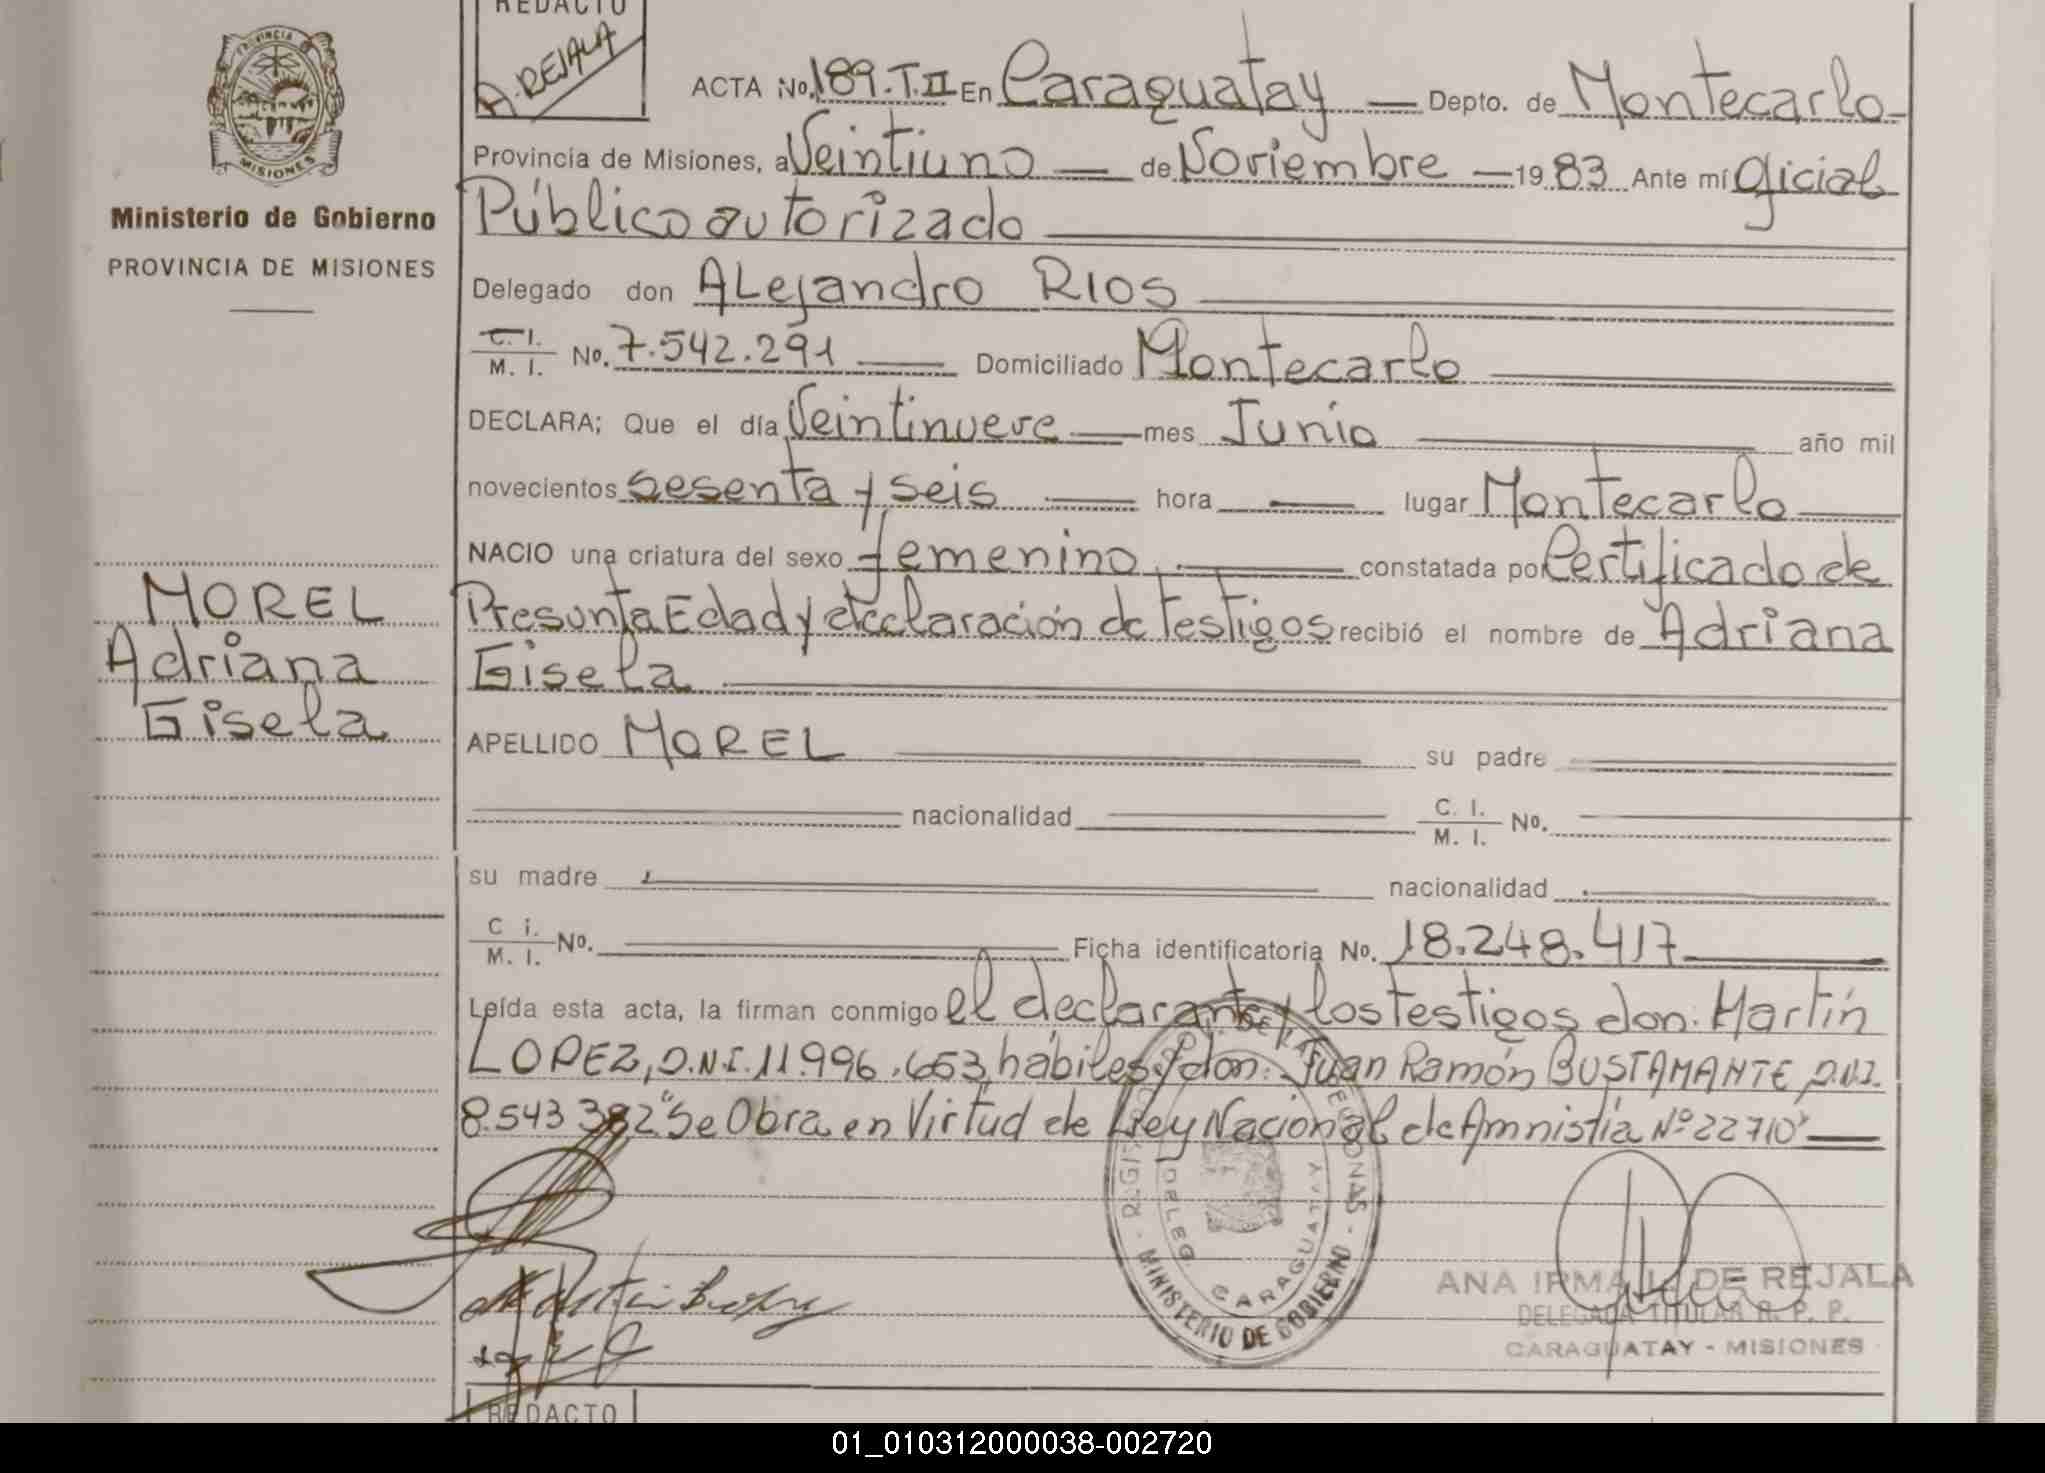 REDACTO
A. REJALA
PROVINCIA
MISIONES
Ministerio de Gobierno
PROVINCIA DE MISIONES
MOREL
Adriana
Gisela
ACTA No. 189.T.II En Caraguatay — Depto. de Montecarlo
Provincia de Misiones, a Veintiuno — de Noviembre — 1983 Ante mí Oficial
Público autorizado
Delegado don ALejandro RIOS
C. I. / M. I. No. 7.542.291 Domiciliado Montecarlo
DECLARA; Que el día Veintinueve — mes Junio año mil
novecientos sesenta y seis hora — lugar Montecarlo
NACIO una criatura del sexo femenino, constatada por Certificado de
Presunta Edad y declaración de testigos recibió el nombre de Adriana
Gisela
APELLIDO MOREL su padre
nacionalidad C. I. / M. I. No.
su madre nacionalidad
C. i. / M. I. No. Ficha identificatoria No. 18.248.417
Leída esta acta, la firman conmigo el declarante y los testigos don: Martín
LOPEZ, D.N.I. 11.996.653, hábiles y don: Juan Ramón BUSTAMANTE D.N.I.
8.543.382 "Se Obra en Virtud de Ley Nacional de Amnistía Nº 22710"
MINISTERIO DE GOBIERNO
CARAGUATAY
ANA IRMA L. DE REJALA
DELEGADA TITULAR R. P. P.
CARAGUATAY - MISIONES
REDACTO
01_010312000038-002720